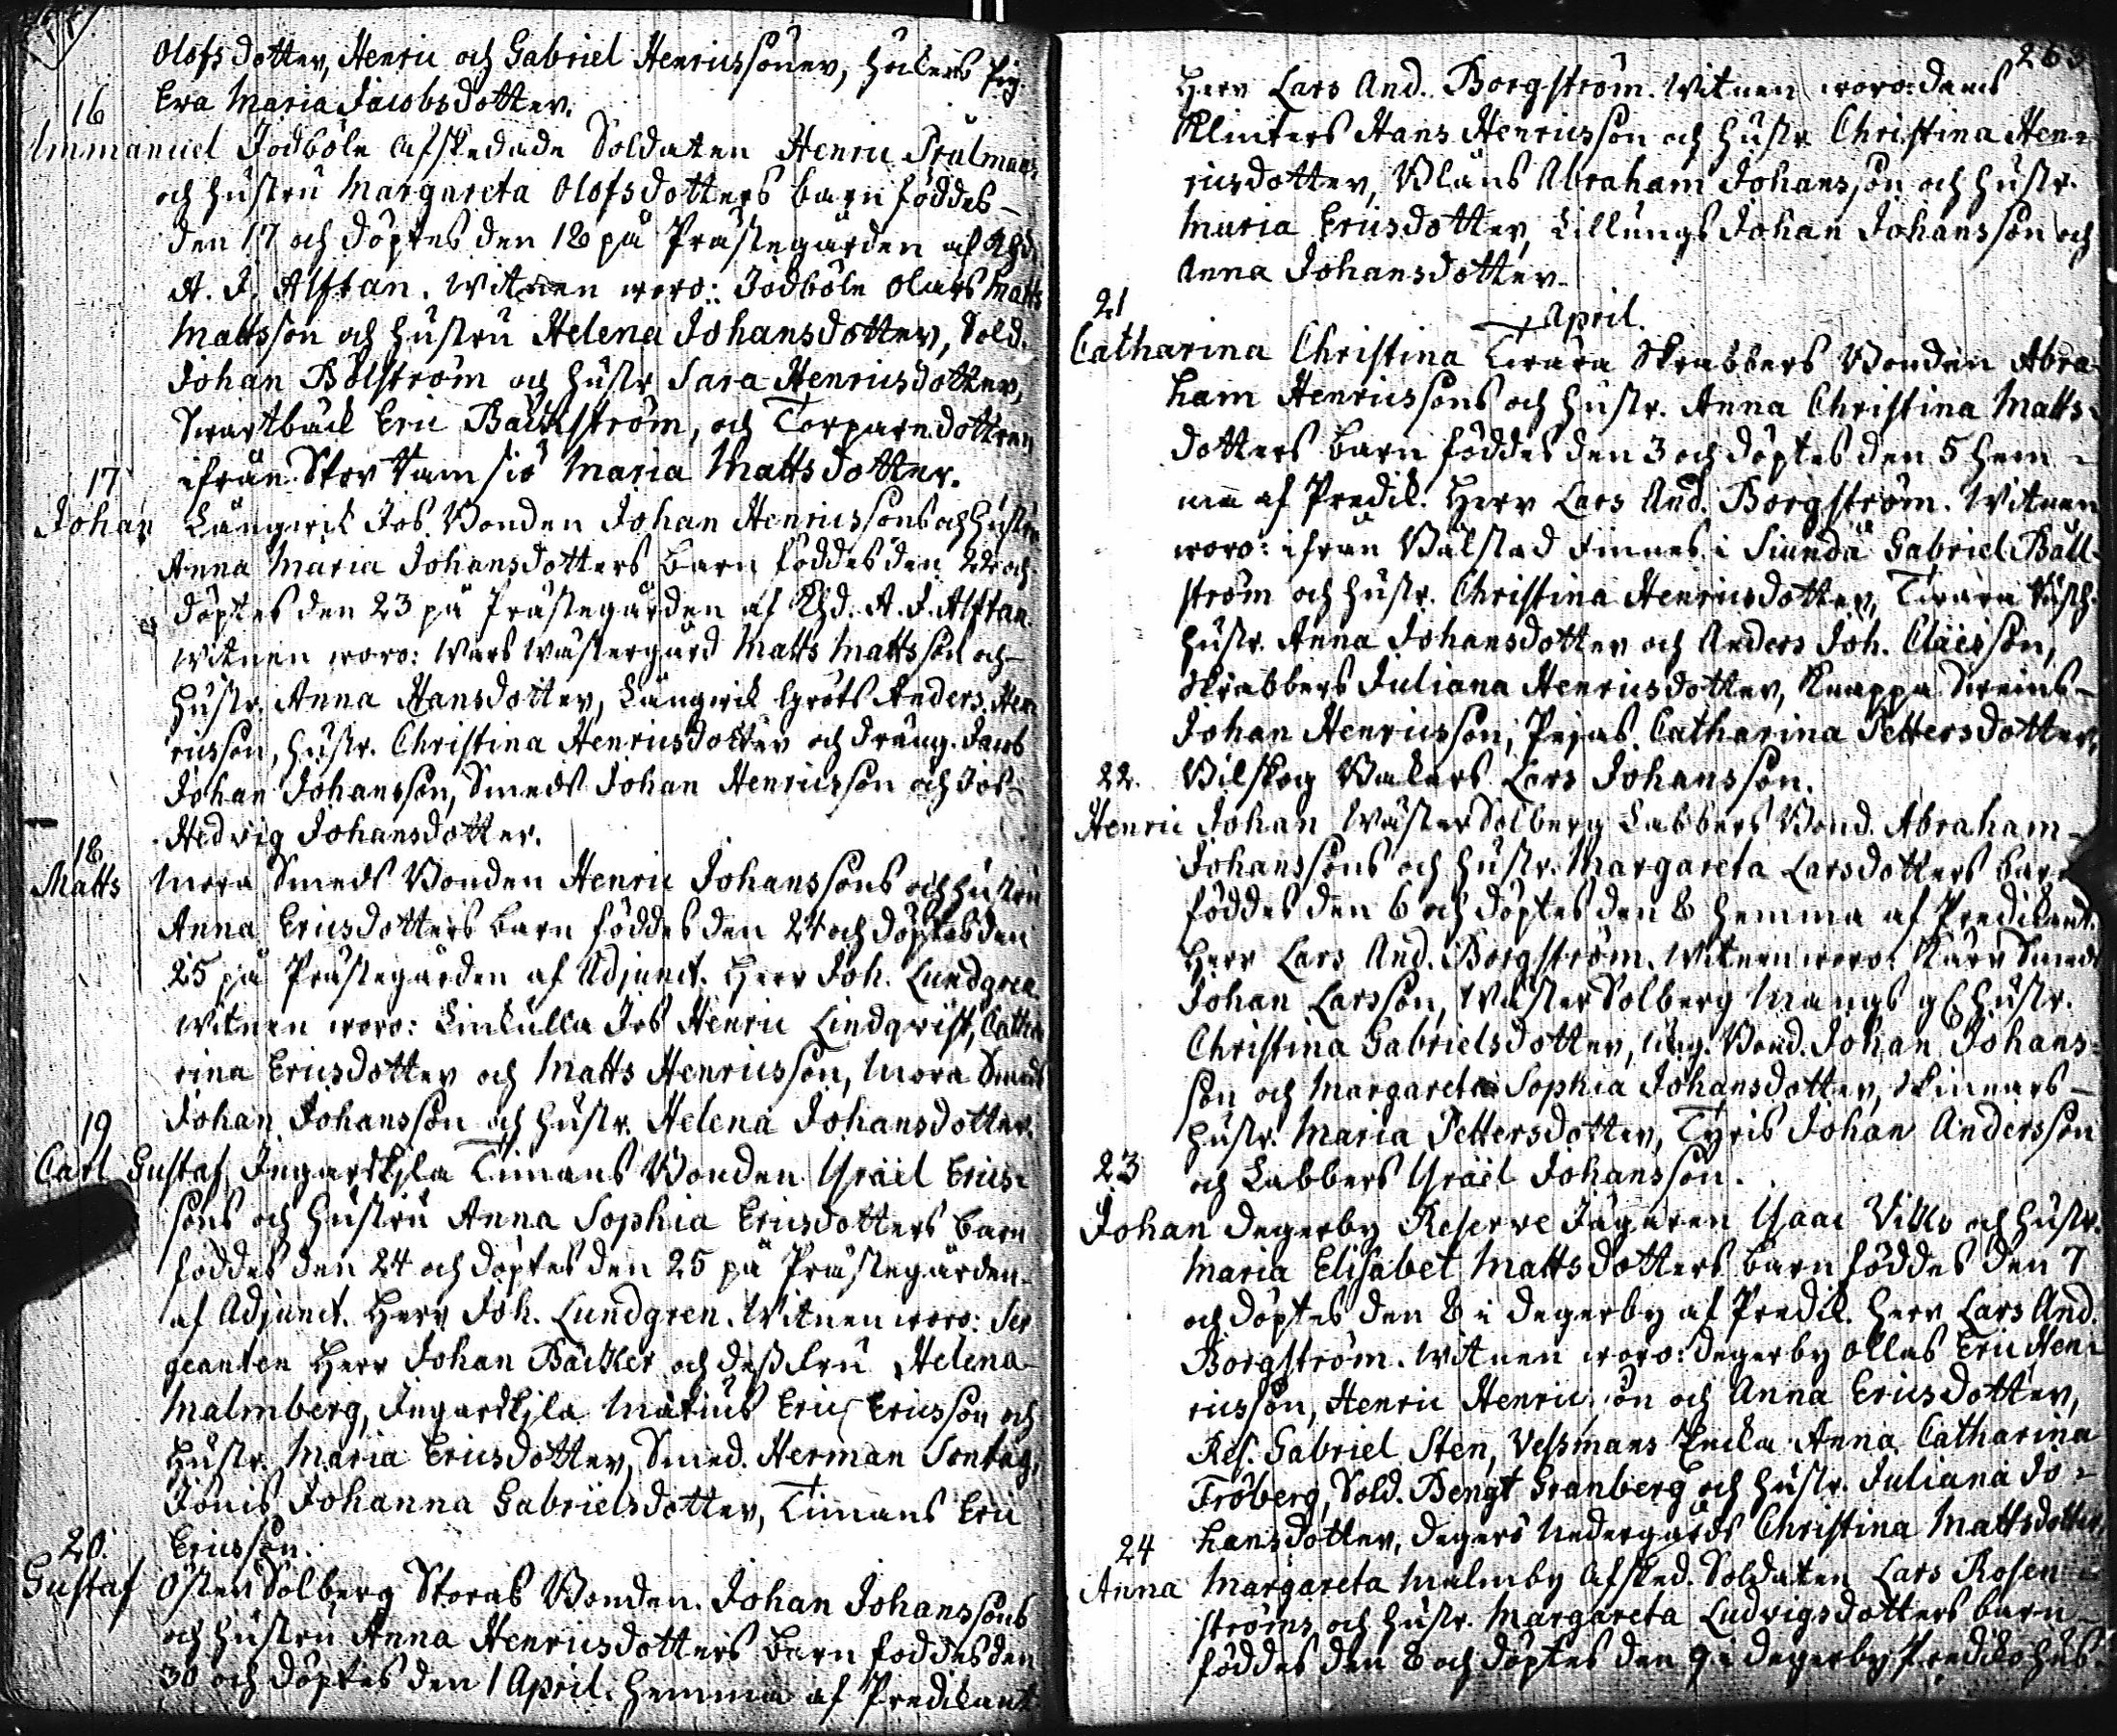 Olofsdotter, Henric och Gabriel Henricssöner, pig.
16 Eva Maria Jacobsdotter.
Immanuel Jodböle Afskedade Soldaten Henric
och hustru Margareta Olofsdotters barn föddes
den 17 och döptes den 18 på Prästegården af Khd.
A. J. Alftan. Witnen woro: Jodböle Olars Matts
Mattsson och hustru Helena Johansdotter, Sold.
Johan Bölström och hustr. Sara Henricsdotter,
Swartbäck Eric Bäckström, och Torparedottren
ifrån Stor Ramsiö Maria Mattsdotter.
17
Johan Långwik Jos. Bonden Johan Henricssons och hustru
Anna Maria Johansdotters barn föddes den 22 och
döptes den 23 på Prästegården af Khd. A. J. Alftan.
Witnen woro: Wars Wästergård Matts Mattsson och
hustr. Anna Hansdotter, Långwik Gröts Anders Hen
ricsson, hustr. Christina Henricsdotter och dräng.
Johan Johansson, Smeds Johan Henricsson och
Hedvig Johansdotter.
18
Matts Mora Smeds Bonden Henric Johanssons och hustru
Anna Ericsdotters barn föddes den 24 och döptes den
25 på Prästegården af Adjunct. Herr Joh. Lundgren.
Witnen woro: Linkulla Jos Henric Lindqvist, Catha
rina Ericsdotter och Matts Henricsson, Mora Smeds
Johan Johansson och hustr. Helena Johansdotter.
19
Carl Gustaf Ingarskjla Timans Bonden Israël Erics-
sons och hustru Anna Sophia Ericsdotters barn
föddes den 24 och döptes den 25 på Prästegården
af Adjunct. Herr Joh. Lundgren. Witnen woro: Ser
geanten Herr Johan Bäcker och dess fru Helena
Malmberg, Ingarskjla Eric Ericsson och
hustr. Maria Ericsdotter, Smed. Herman Sontag,
Jönis Johanna Gabrielsdotter, Timans Eric
20. Ericsson.
Gustaf Öster Solberg Storas Bonden Johan Johanssons
och hustru Anna Henricsdotters barn föddes den
30 och döptes den 1 April. hemma af Predikant
Herr Lars And. Borgström. Witnen woro:
Klinkers Hans Henricsson och hustr. Christina Hen-
ricsdotter, Abraham Johansson och hustr.
Maria Ericsdotter, Lillungs Johan Johansson och
Anna Johansdotter.
21
April.
Catharina Christina Twära Skrabbers Bonden Abra
ham Henricssons och hustr. Anna Christina Matts-
dotters barn föddes den 3 och döptes den 5 hem-
ma af Predik. Herr Lars And. Borgström. Witnen
woro: ifrån Bälstad Finnes i Siundå Gabriel Bäll-
ström och hustr. Christina Henricsdotter, Twära
hustr. Anna Johansdotter och Anders Joh. Claësson,
Skrabbers Juliana Henricsdotter, Knappa
Johan Henricsson, Pejas Catharina Pettersdotter,
22. Bilskog Lars Johansson.
Henric Johan Wäster Solberg Labbers Bond. Abraham
Johanssons och hustr. Margareta Larsdotters barn
föddes den 6 och döptes den 8 hemma af Predikant.
Herr Lars And. Borgström. Witnen woro: Kärr Smeds
Johan Larsson, Wäster Solberg Mangs hustr.
Christina Gabrielsdotter, Ung. Bond. Johan Johans-
son och Margareta Sophia Johansdotter, Skinnars
hustr. Maria Pettersdotter, Tyris Johan Andersson
23 och Labbers Israël Johansson.
Johan Degerby Reserve Jägaren Isaac och hustr.
Maria Elisabet Mattsdotters barn föddes den 7
och döptes den 8 i Degerby af Predik. Herr Lars And.
Borgström. Witnen woro: Degerby Ollas Eric Hen-
ricsson, Henric Henricsson och Anna Ericsdotter,
Res. Gabriel Sten, Vessmans Enka Anna Catharina
Fröberg, Sold. Bengt Granberg och hustr. Juliana Jo-
hansdotter, Degers Nedergårds Christina Mattsdotter
24
Anna Margareta Malmby Afsked. Soldaten Lars Rosen-
ströms och hustr. Margareta Ludvigsdotters barn
föddes den 8 och döptes den 9 i Degerby Prediko hus.